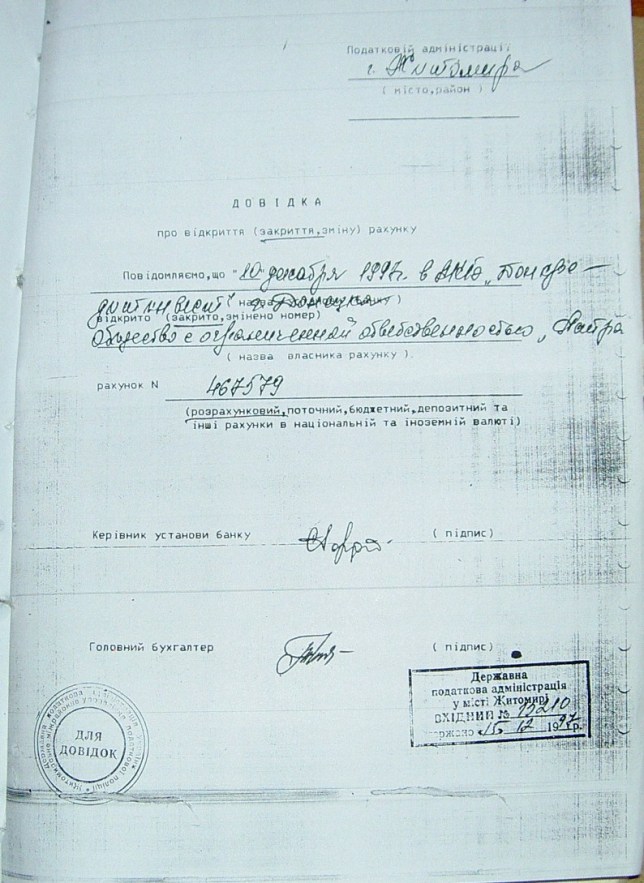 Податковій адміністрації
г. Житомира
( місто,район )
ДОВІДКА
про відкриття (закриття,зміну) рахунку
Повідомляємо,що "10" декабря 1997г. в
відкрито (закрито,змінено номер)
Общество с ограниченной ответственностью
( назва власника рахунку )
рахунок N 467579
(розрахунковий,поточний,бюджетний,депозитний та
інші рахунки в національній та іноземній валюті)
Керівник установи банку ( підпис)
Головний бухгалтер ( підпис)
Державна
податкова адміністрація
у місті Житомирі
ВХІДНИЙ № 13210
15 12 1997р.
ДЛЯ
ДОВІДОК